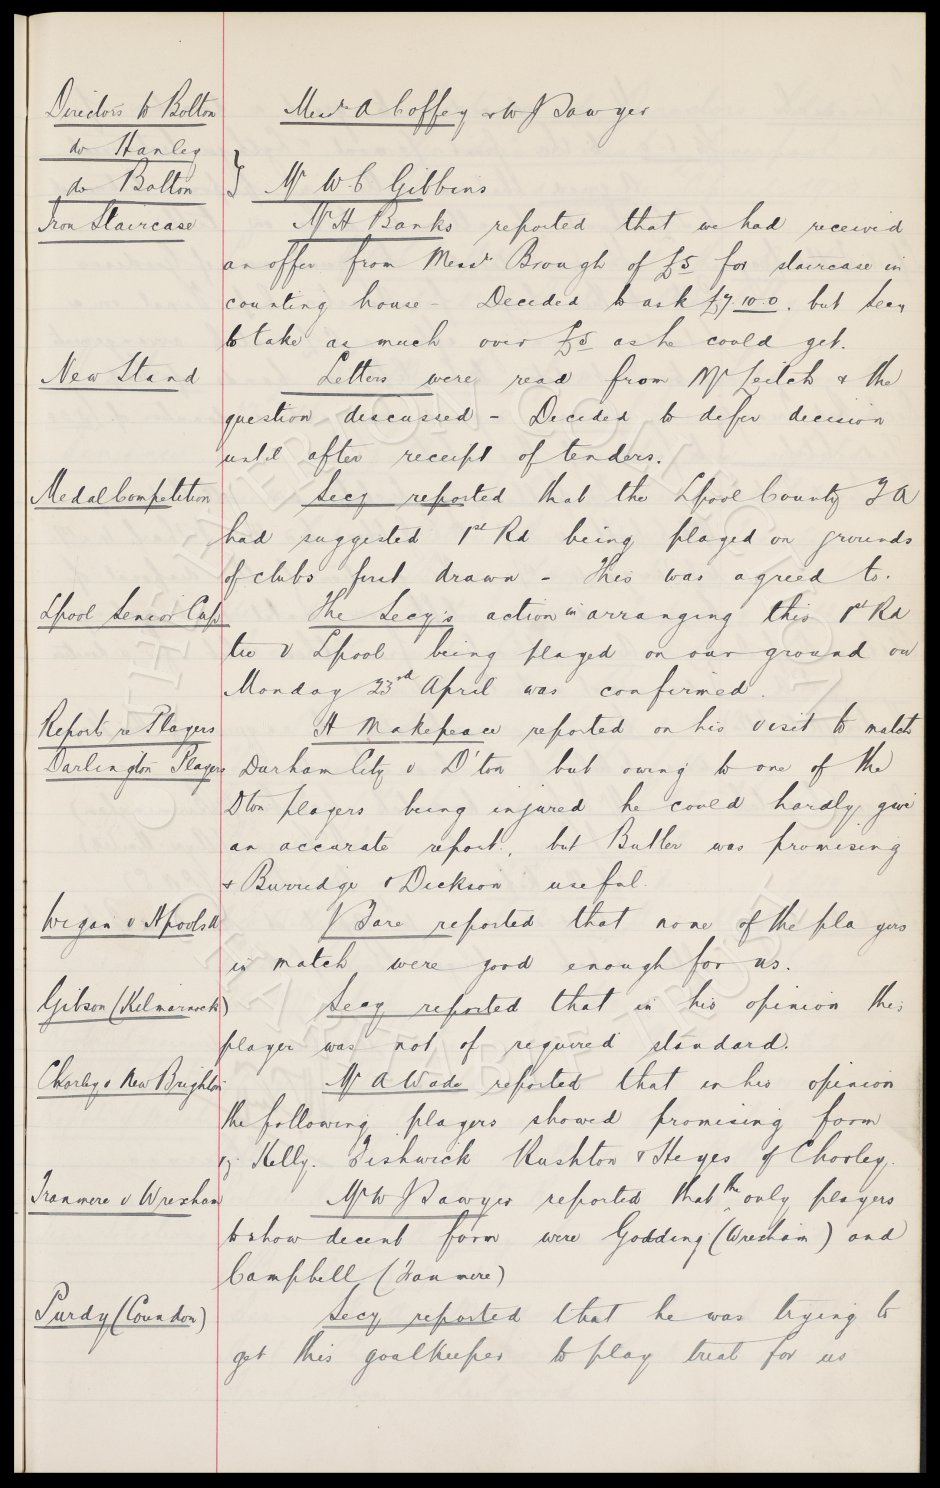 Directors to Bolton Messrs A Coffey & W J Sawyer
do Hanley
do Bolton } Mr W C Gibbins
Iron Staircase Mr H Banks reported that we had received
an offer from Messrs Brough of £5 for staircase in
counting house - Decided to ask £7.10.0. but Secy
to take as much over £5 as he could get.
New Stand Letters were read from Mr Leitch & the
question discussed - Decided to defer decision
until after receipt of tenders.
Medal Competition Secy reported that the Lpool County F A
had suggested 1st Rd being played on grounds
of clubs first drawn - This was agreed to.
Lpool Senior Cup The Secy's action in arranging this 1st Rd
tie v Lpool being played on our ground on
Monday 23rd April was confirmed.
Reports re Players H Makepeace reported on his visit to match
Darlington Players Durham City v D'ton but owing to one of the
Dton players being injured he could hardly give
an accurate report, but Butler was promising
& Burridge & Dickson useful.
Wigan v Hpools U J Fare reported that none of the players
in match were good enough for us.
Gibson (Kilmarnock) Secy reported that in his opinion this
player was not of required standard.
Chorley v New Brighton Mr A Wade reported that in his opinion
the following players showed promising form
Kelly. Fishwick Rushton & Heyes of Chorley.
Tranmere v Wrexham Mr W J Sawyer reported that the only players
to show decent form were Godding (Wrexham) and
Campbell (Tranmere)
Purdy (Coundon) Secy reported that he was trying to
get this goalkeeper to play trial for us